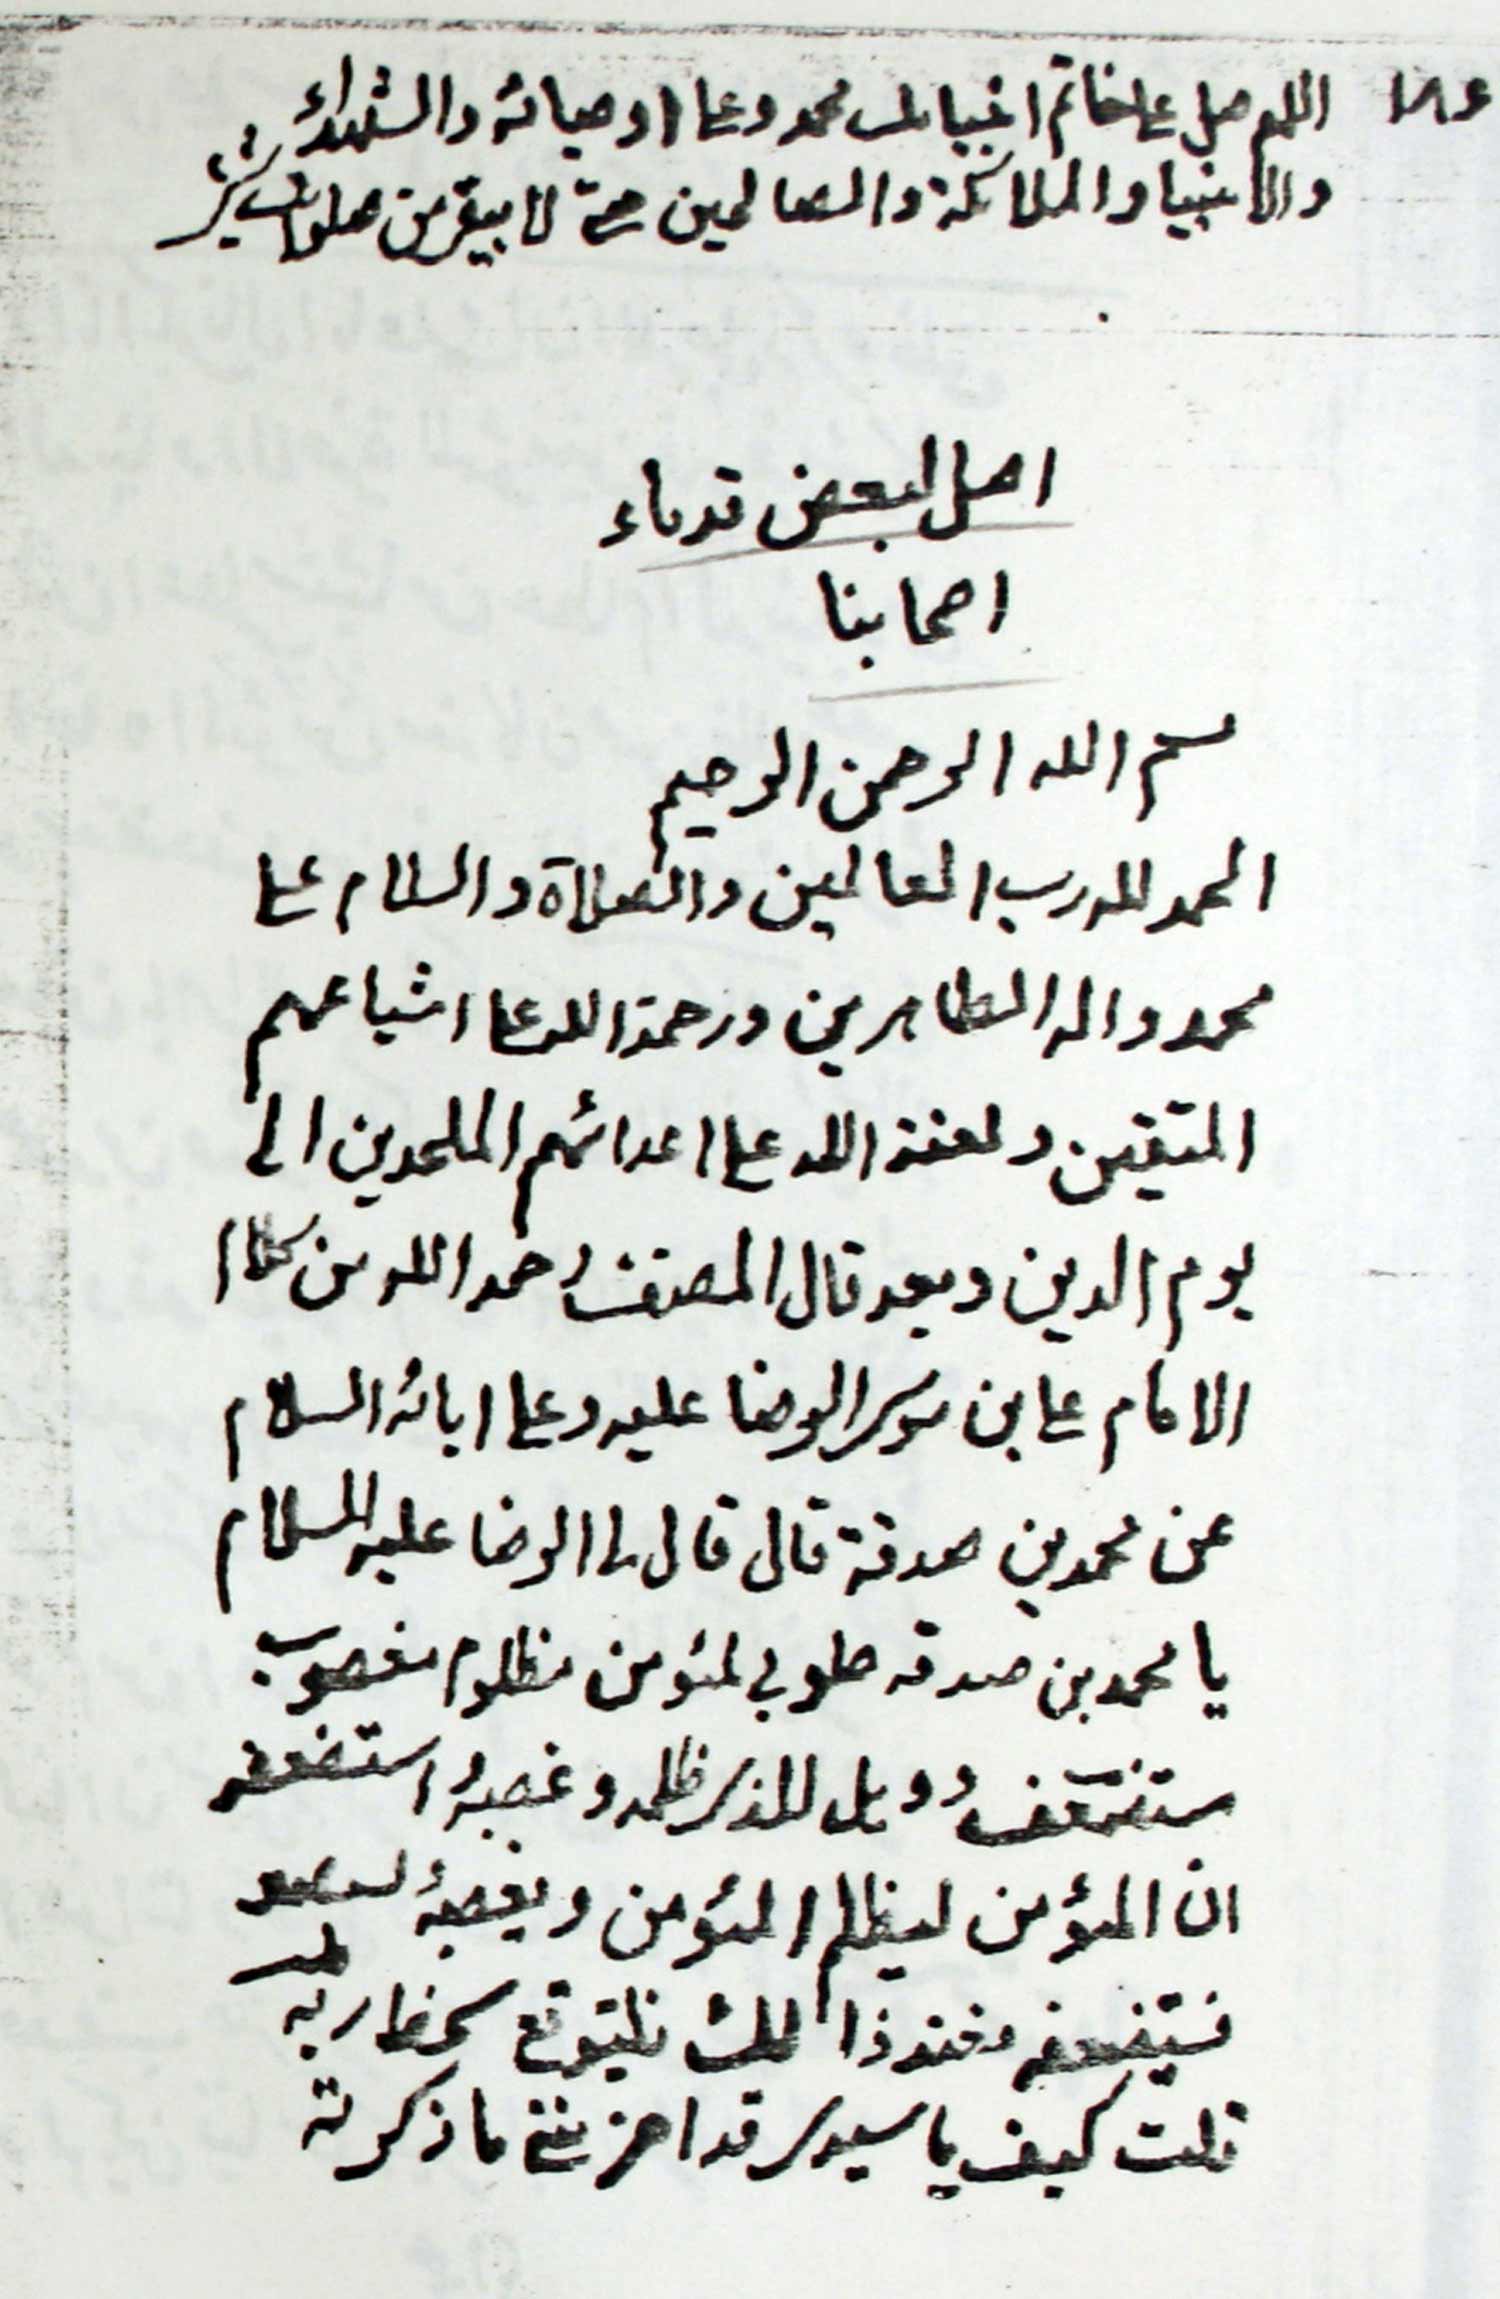 اللهم صل على خاتم انبيائك محمد وعلى اوصيائه والشهداء
والانبيا والملائكة والصالحين حتى لا يبقى من صلواتك شئ
اصل لبعض قدماء
اصحابنا
بسم الله الرحمن الرحيم
الحمد لله رب العالمين والصلاة والسلام على
محمد واله الطاهرين ورحمة الله على اشياعهم
المتقين ولعنة الله على اعدائهم الملحدين الى
يوم الدين وبعد قال المصنف رحمه الله من كلام
الامام على بن موسى الرضا عليه وعلى ابائه السلام
عن محمد بن صدقة قال قال لى الرضا عليه السلام
يا محمد بن صدقه طوبى لمؤمن مظلوم مغصوب
مستضعف وويل للذى ظلمه وغصبه واستضعفه
ان المؤمن ليظلم المؤمن ويغصبه
فيستضعفه فعند ذلك فليتوقع سخط ربه
قلت كيف يا سيدى قد احزننى ما ذكرته